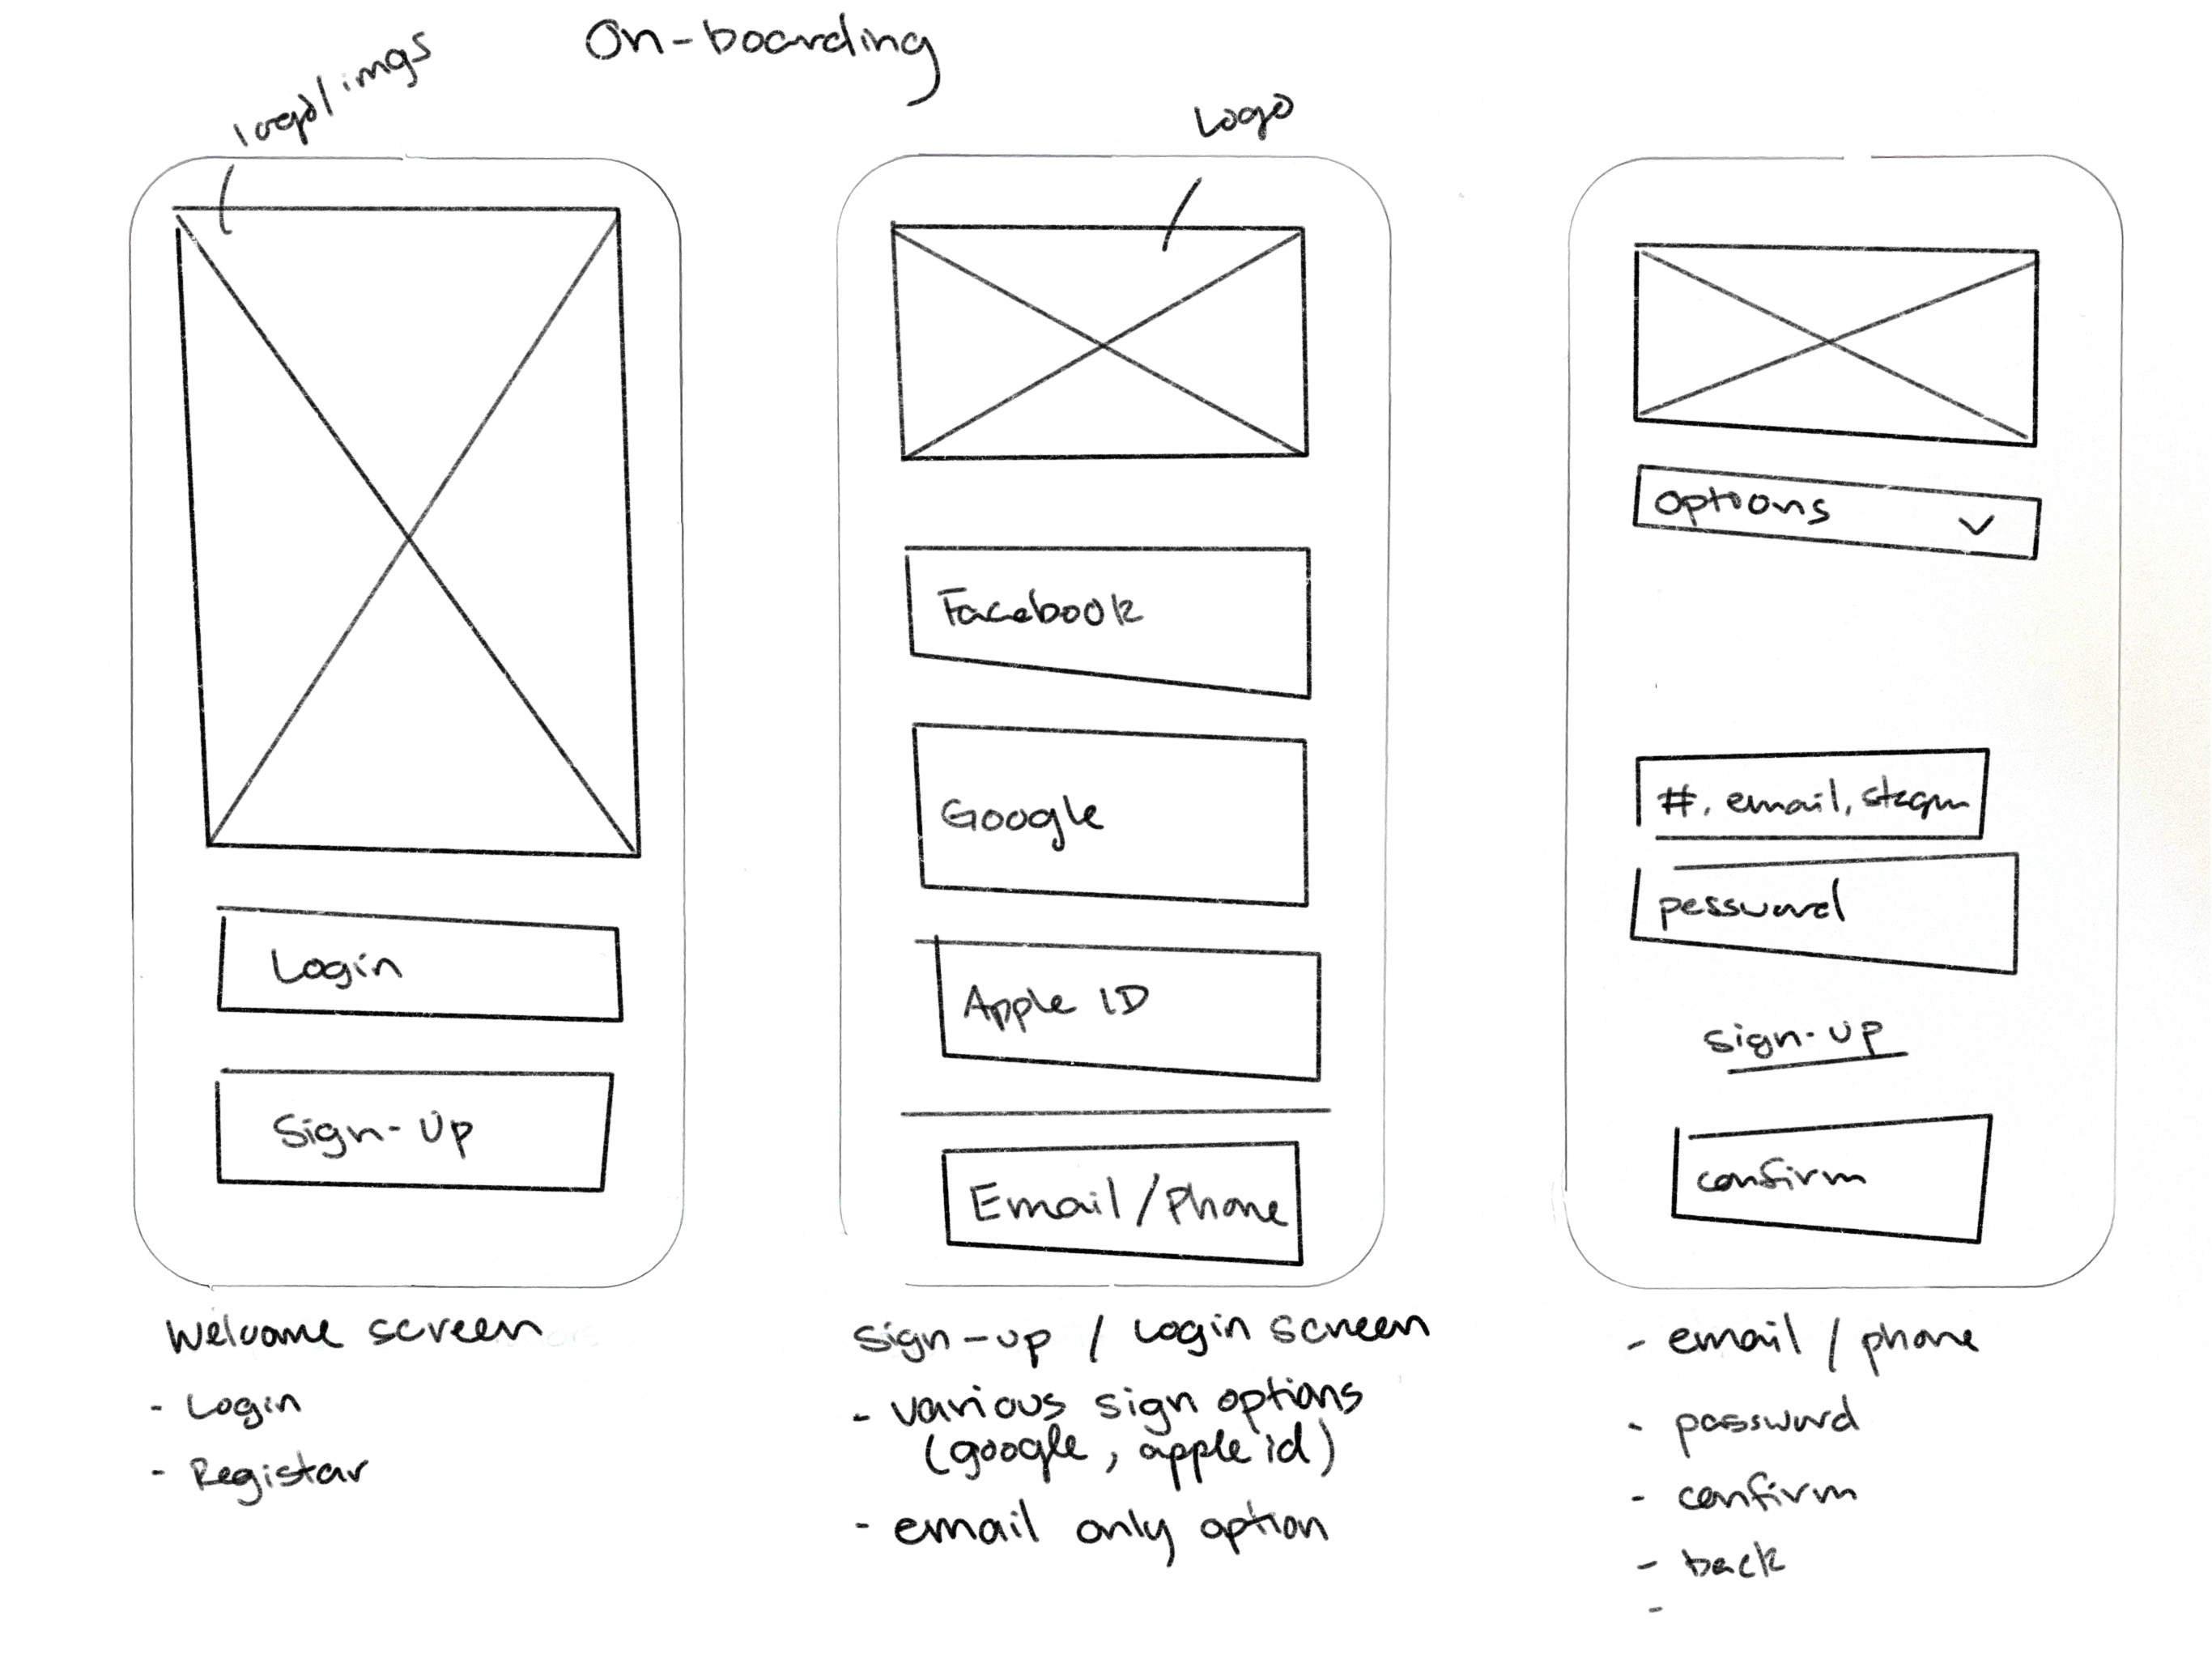 On-boarding
logo/imgs
Login
Sign-Up
Welcome screen
- Login
- Registar
Logo
Facebook
Google
Apple ID
Email/Phone
Sign-up / Login screen
- various sign options
(google, apple id)
- email only option
options
#, email,
password
sign-up
confirm
- email / phone
- password
- confirm
- back
-